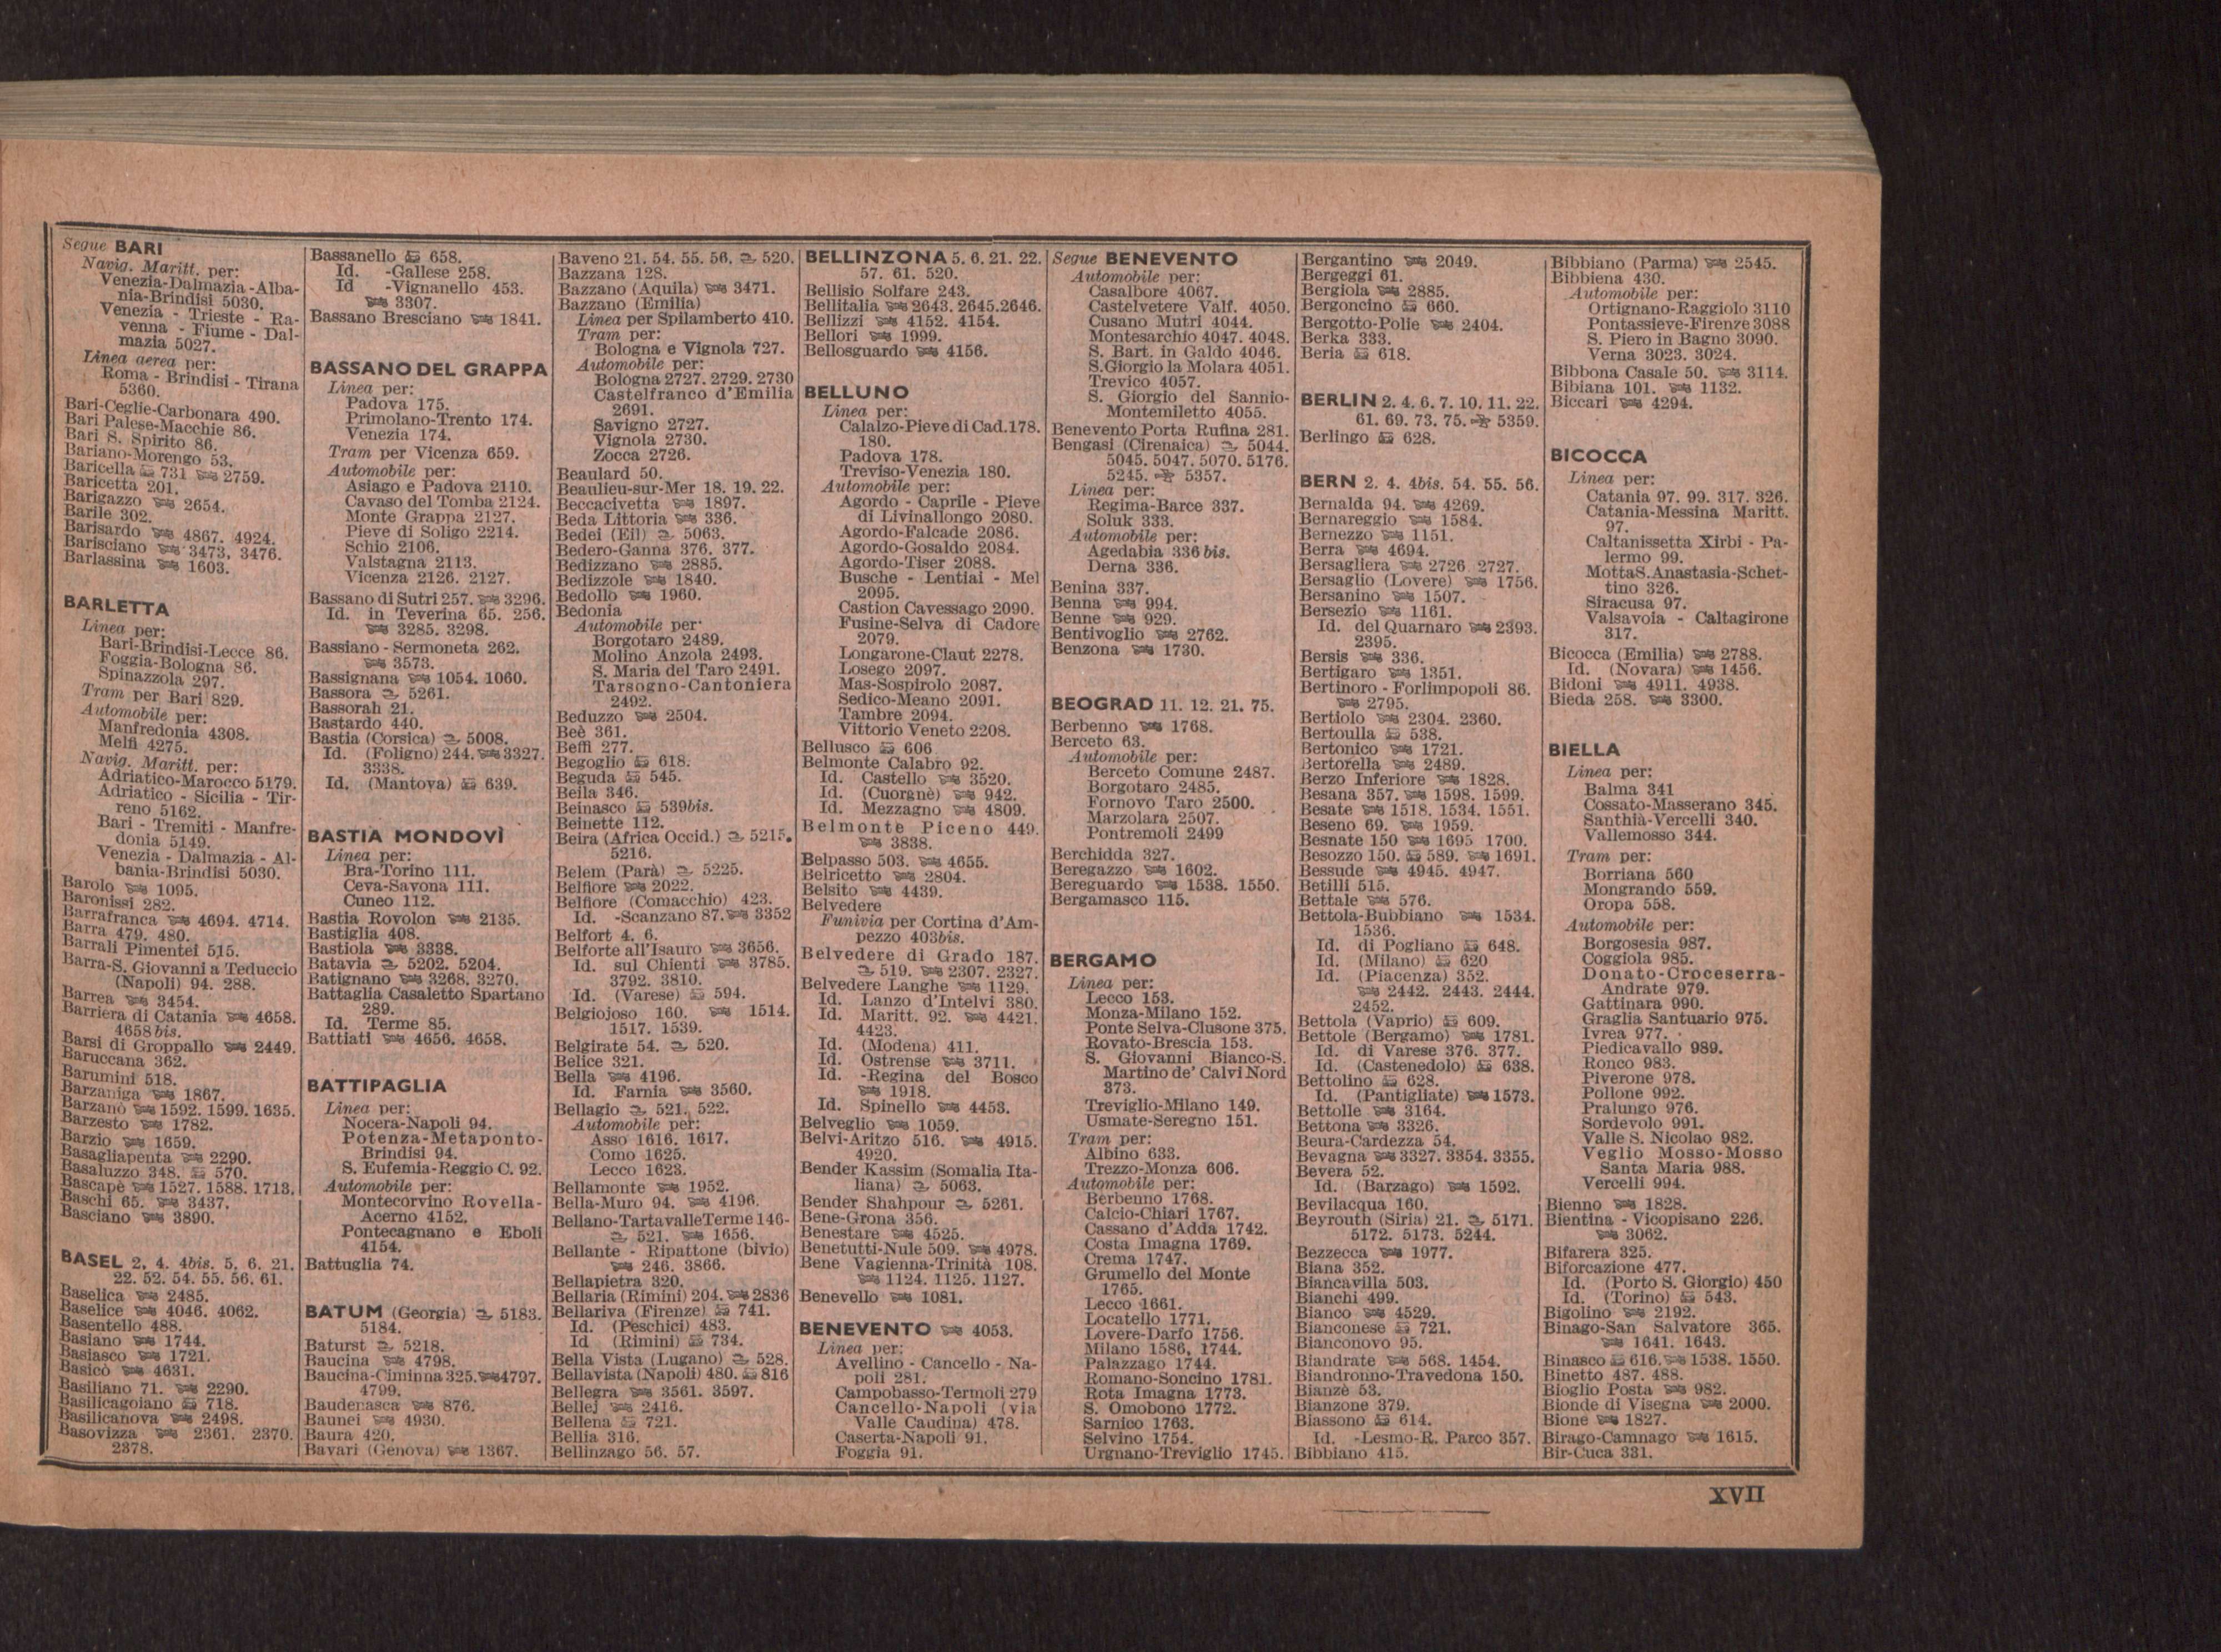 Segue BARI
Navig. Maritt. per:
Venezia-Dalmazia-Alba-
nia-Brindisi 5030.
Venezia - Trieste - Ra-
venna - Fiume - Dal-
mazia 5027.
Linea aerea per:
Roma - Brindisi - Tirana
5360.
Bari-Ceglie-Carbonara 490.
Bari Palese-Macchie 86.
Bari S. Spirito 86.
Bariano-Morengo 53.
Baricella 731 2759.
Baricetta 201.
Barigazzo 2654.
Barile 302.
Barisardo 4867. 4924.
Barisciano 3473. 3476.
Barlassina 1603.
BARLETTA
Linea per:
Bari-Brindisi-Lecce 86.
Foggia-Bologna 86.
Spinazzola 297.
Tram per Bari 829.
Automobile per:
Manfredonia 4308.
Melfi 4275.
Navig. Maritt. per:
Adriatico-Marocco 5179.
Adriatico - Sicilia - Tir-
reno 5162.
Bari - Tremiti - Manfre-
donia 5149.
Venezia - Dalmazia - Al-
bania-Brindisi 5030.
Barolo 1095.
Baronissi 282.
Barrafranca 4694. 4714.
Barra 479. 480.
Barrali Pimentei 515.
Barra-S. Giovanni a Teduccio
(Napoli) 94. 288.
Barrea 3454.
Barriera di Catania 4658.
4658 bis.
Barsi di Groppallo 2449.
Baruccana 362.
Barumini 518.
Barzaniga 1867.
Barzanò 1592. 1599. 1635.
Barzesto 1782.
Barzio 1659.
Basagliapenta 2290.
Basaluzzo 348. 570.
Bascapè 1527. 1588. 1713.
Baschi 65. 3437.
Basciano 3890.
BASEL 2. 4. 4bis. 5. 6. 21.
22. 52. 54. 55. 56. 61.
Baselica 2485.
Baselice 4046. 4062.
Basentello 488.
Basiano 1744.
Basiasco 1721.
Basicò 4631.
Basiliano 71. 2290.
Basilicagoiano 718.
Basilicanova 2498.
Basovizza 2361. 2370.
2378.
Bassanello 658.
Id. -Gallese 258.
Id -Vignanello 453.
3307.
Bassano Bresciano 1841.
BASSANO DEL GRAPPA
Linea per:
Padova 175.
Primolano-Trento 174.
Venezia 174.
Tram per Vicenza 659.
Automobile per:
Asiago e Padova 2110.
Cavaso del Tomba 2124.
Monte Grappa 2127.
Pieve di Soligo 2214.
Schio 2106.
Valstagna 2113.
Vicenza 2126. 2127.
Bassano di Sutri 257. 3296.
Id. in Teverina 65. 256.
3285. 3298.
Bassiano - Sermoneta 262.
3573.
Bassignana 1054. 1060.
Bassora 5261.
Bassorah 21.
Bastardo 440.
Bastia (Corsica) 5008.
Id. (Foligno) 244. 3327.
3338.
Id. (Mantova) 639.
BASTIA MONDOVÌ
Linea per:
Bra-Torino 111.
Ceva-Savona 111.
Cuneo 112.
Bastia Rovolon 2135.
Bastiglia 408.
Bastiola 3338.
Batavia 5202. 5204.
Batignano 3268. 3270.
Battaglia Casaletto Spartano
289.
Id. Terme 85.
Battiati 4656. 4658.
BATTIPAGLIA
Linea per:
Nocera-Napoli 94.
Potenza-Metaponto-
Brindisi 94.
S. Eufemia-Reggio C. 92.
Automobile per:
Montecorvino Rovella-
Acerno 4152.
Pontecagnano e Eboli
4154.
Battuglia 74.
BATUM (Georgia) 5183.
5184.
Baturst 5218.
Baucina 4798.
Baucina-Ciminna 325. 4797.
4799.
Baudenasca 876.
Baunei 4930.
Baura 420.
Bavari (Genova) 1367.
Baveno 21. 54. 55. 56. 520.
Bazzana 128.
Bazzano (Aquila) 3471.
Bazzano (Emilia)
Linea per Spilamberto 410.
Tram per:
Bologna e Vignola 727.
Automobile per:
Bologna 2727. 2729. 2730
Castelfranco d'Emilia
2691.
Savigno 2727.
Vignola 2730.
Zocca 2726.
Beaulard 50.
Beaulieu-sur-Mer 18. 19. 22.
Beccacivetta 1897.
Beda Littoria 336.
Bedei (Eil) 5063.
Bedero-Ganna 376. 377.
Bedizzano 2885.
Bedizzole 1840.
Bedollo 1960.
Bedonia
Automobile per:
Borgotaro 2489.
Molino Anzola 2493.
S. Maria del Taro 2491.
Tarsogno-Cantoniera
2492.
Beduzzo 2504.
Beè 361.
Beffi 277.
Begoglio 618.
Beguda 545.
Beila 346.
Beinasco 539bis.
Beinette 112.
Beira (Africa Occid.) 5215.
5216.
Belem (Parà) 5225.
Belfiore 2022.
Belfiore (Comacchio) 423.
Id. -Scanzano 87. 3352
Belfort 4. 6.
Belforte all'Isauro 3656.
Id. sul Chienti 3785.
3792. 3810.
Id. (Varese) 594.
Belgiojoso 160. 1514.
1517. 1539.
Belgirate 54. 520.
Belice 321.
Bella 4196.
Id. Farnia 3560.
Bellagio 521. 522.
Automobile per:
Asso 1616. 1617.
Como 1625.
Lecco 1623.
Bellamonte 1952.
Bella-Muro 94. 4196.
Bellano-TartavalleTerme 146-
521. 1656.
Bellante - Ripattone (bivio)
246. 3866.
Bellapietra 320.
Bellaria (Rimini) 204. 2836
Bellariva (Firenze) 741.
Id. (Peschici) 483.
Id (Rimini) 734.
Bella Vista (Lugano) 528.
Bellavista (Napoli) 480. 816
Bellegra 3561. 3597.
Bellej 2416.
Bellena 721.
Bellia 316.
Bellinzago 56. 57.
BELLINZONA 5. 6. 21. 22.
57. 61. 520.
Bellisio Solfare 243.
Bellitalia 2643. 2645.2646.
Bellizzi 4152. 4154.
Bellori 1999.
Bellosguardo 4156.
BELLUNO
Linea per:
Calalzo-Pieve di Cad.178.
180.
Padova 178.
Treviso-Venezia 180.
Automobile per:
Agordo - Caprile - Pieve
di Livinallongo 2080.
Agordo-Falcade 2086.
Agordo-Gosaldo 2084.
Agordo-Tiser 2088.
Busche - Lentiai - Mel
2095.
Castion Cavessago 2090.
Fusine-Selva di Cadore
2079.
Longarone-Claut 2278.
Losego 2097.
Mas-Sospirolo 2087.
Sedico-Meano 2091.
Tambre 2094.
Vittorio Veneto 2208.
Bellusco 606
Belmonte Calabro 92.
Id. Castello 3520.
Id. (Cuorgnè) 942.
Id. Mezzagno 4809.
Belmonte Piceno 449.
3838.
Belpasso 503. 4655.
Belricetto 2804.
Belsito 4439.
Belvedere
Funivia per Cortina d'Am-
pezzo 403bis.
Belvedere di Grado 187.
519. 2307. 2327.
Belvedere Langhe 1129.
Id. Lanzo d'Intelvi 380.
Id. Maritt. 92. 4421.
4423.
Id. (Modena) 411.
Id. Ostrense 3711.
Id. -Regina del Bosco
1918.
Id. Spinello 4453.
Belveglio 1059.
Belvi-Aritzo 516. 4915.
4920.
Bender Kassim (Somalia Ita-
liana) 5063.
Bender Shahpour 5261.
Bene-Grona 356.
Benestare 4525.
Benetutti-Nule 509. 4978.
Bene Vagienna-Trinità 108.
1124. 1125. 1127.
Benevello 1081.
BENEVENTO 4053.
Linea per:
Avellino - Cancello - Na-
poli 281.
Campobasso-Termoli 279
Cancello-Napoli (via
Valle Caudina) 478.
Caserta-Napoli 91.
Foggia 91.
Segue BENEVENTO
Automobile per:
Casalbore 4067.
Castelvetere Valf. 4050.
Cusano Mutri 4044.
Montesarchio 4047. 4048.
S. Bart. in Galdo 4046.
S.Giorgio la Molara 4051.
Trevico 4057.
S. Giorgio del Sannio-
Montemiletto 4055.
Benevento Porta Rufina 281.
Bengasi (Cirenaica) 5044.
5045. 5047. 5070. 5176.
5245. 5357.
Linea per:
Regima-Barce 337.
Soluk 333.
Automobile per:
Agedabia 336 bis.
Derna 336.
Benina 337.
Benna 994.
Benne 929.
Bentivoglio 2762.
Benzona 1730.
BEOGRAD 11. 12. 21. 75.
Berbenno 1768.
Berceto 63.
Automobile per:
Berceto Comune 2487.
Borgotaro 2485.
Fornovo Taro 2500.
Marzolara 2507.
Pontremoli 2499
Berchidda 327.
Beregazzo 1602.
Bereguardo 1538. 1550.
Bergamasco 115.
BERGAMO
Linea per:
Lecco 153.
Monza-Milano 152.
Ponte Selva-Clusone 375.
Rovato-Brescia 153.
S. Giovanni Bianco-S.
Martino de' Calvi Nord
373.
Treviglio-Milano 149.
Usmate-Seregno 151.
Tram per:
Albino 633.
Trezzo-Monza 606.
Automobile per:
Berbenno 1768.
Calcio-Chiari 1767.
Cassano d'Adda 1742.
Costa Imagna 1769.
Crema 1747.
Grumello del Monte
1765.
Lecco 1661.
Locatello 1771.
Lovere-Darfo 1756.
Milano 1586. 1744.
Palazzago 1744.
Romano-Soncino 1781.
Rota Imagna 1773.
S. Omobono 1772.
Sarnico 1763.
Selvino 1754.
Urgnano-Treviglio 1745.
Bergantino 2049.
Bergeggi 61.
Bergiola 2885.
Bergoncino 660.
Bergotto-Polie 2404.
Berka 333.
Beria 618.
BERLIN 2. 4. 6. 7. 10. 11. 22.
61. 69. 73. 75. 5359.
Berlingo 628.
BERN 2. 4. 4bis. 54. 55. 56.
Bernalda 94. 4269.
Bernareggio 1584.
Bernezzo 1151.
Berra 4694.
Bersagliera 2726. 2727.
Bersaglio (Lovere) 1756.
Bersanino 1507.
Bersezio 1161.
Id. del Quarnaro 2393.
2395.
Bersis 336.
Bertigaro 1351.
Bertinoro - Forlimpopoli 86.
2795.
Bertiolo 2304. 2360.
Bertoulla 538.
Bertonico 1721.
Bertorella 2489.
Berzo Inferiore 1828.
Besana 357. 1598. 1599.
Besate 1518. 1534. 1551.
Beseno 69. 1959.
Besnate 150 1695 1700.
Besozzo 150. 589. 1691.
Bessude 4945. 4947.
Betilli 515.
Bettale 576.
Bettola-Bubbiano 1534.
1536.
Id. di Pogliano 648.
Id. (Milano) 620
Id. (Piacenza) 352.
2442. 2443. 2444.
2452.
Bettola (Vaprio) 609.
Bettole (Bergamo) 1781.
Id. di Varese 376. 377.
Id. (Castenedolo) 638.
Bettolino 628.
Id. (Pantigliate) 1573.
Bettolle 3164.
Bettona 3326.
Beura-Cardezza 54.
Bevagna 3327. 3354. 3355.
Bevera 52.
Id. (Barzago) 1592.
Bevilacqua 160.
Beyrouth (Siria) 21. 5171.
5172. 5173. 5244.
Bezzecca 1977.
Biana 352.
Biancavilla 503.
Bianchi 499.
Bianco 4529.
Bianconese 721.
Bianconovo 95.
Biandrate 568. 1454.
Biandronno-Travedona 150.
Bianzè 53.
Bianzone 379.
Biassono 614.
Id. -Lesmo-R. Parco 357.
Bibbiano 415.
Bibbiano (Parma) 2545.
Bibbiena 430.
Automobile per:
Ortignano-Raggiolo 3110
Pontassieve-Firenze 3088
S. Piero in Bagno 3090.
Verna 3023. 3024.
Bibbona Casale 50. 3114.
Bibiana 101. 1132.
Biccari 4294.
BICOCCA
Linea per:
Catania 97. 99. 317. 326.
Catania-Messina Maritt.
97.
Caltanissetta Xirbi - Pa-
lermo 99.
MottaS.Anastasia-Schet-
tino 326.
Siracusa 97.
Valsavoia - Caltagirone
317.
Bicocca (Emilia) 2788.
Id. (Novara) 1456.
Bidoni 4911. 4938.
Bieda 258. 3300.
BIELLA
Linea per:
Balma 341
Cossato-Masserano 345.
Santhià-Vercelli 340.
Vallemosso 344.
Tram per:
Borriana 560
Mongrando 559.
Oropa 558.
Automobile per:
Borgosesia 987.
Coggiola 985.
Donato-Croceserra-
Andrate 979.
Gattinara 990.
Graglia Santuario 975.
Ivrea 977.
Piedicavallo 989.
Ronco 983.
Piverone 978.
Pollone 992.
Pralungo 976.
Sordevolo 991.
Valle S. Nicolao 982.
Veglio Mosso-Mosso
Santa Maria 988.
Vercelli 994.
Bienno 1828.
Bientina - Vicopisano 226.
3062.
Bifarera 325.
Biforcazione 477.
Id. (Porto S. Giorgio) 450
Id. (Torino) 543.
Bigolino 2192.
Binago-San Salvatore 365.
1641. 1643.
Binasco 616. 1538. 1550.
Binetto 487. 488.
Bioglio Posta 982.
Bionde di Visegna 2000.
Bione 1827.
Birago-Camnago 1615.
Bir-Cuca 331.
XVII